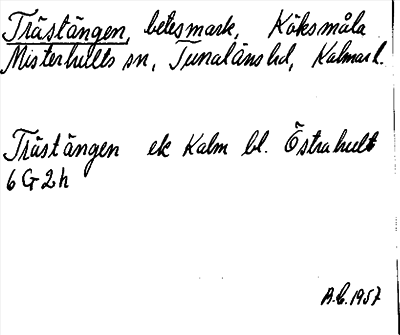 Trästängen, betesmark, Köksmåla
Misterhults sn, Tunaläns hd, Kalmar l.
Trästängen ek Kalm bl. Östrahult
6 G 2 h
A.C. 1957